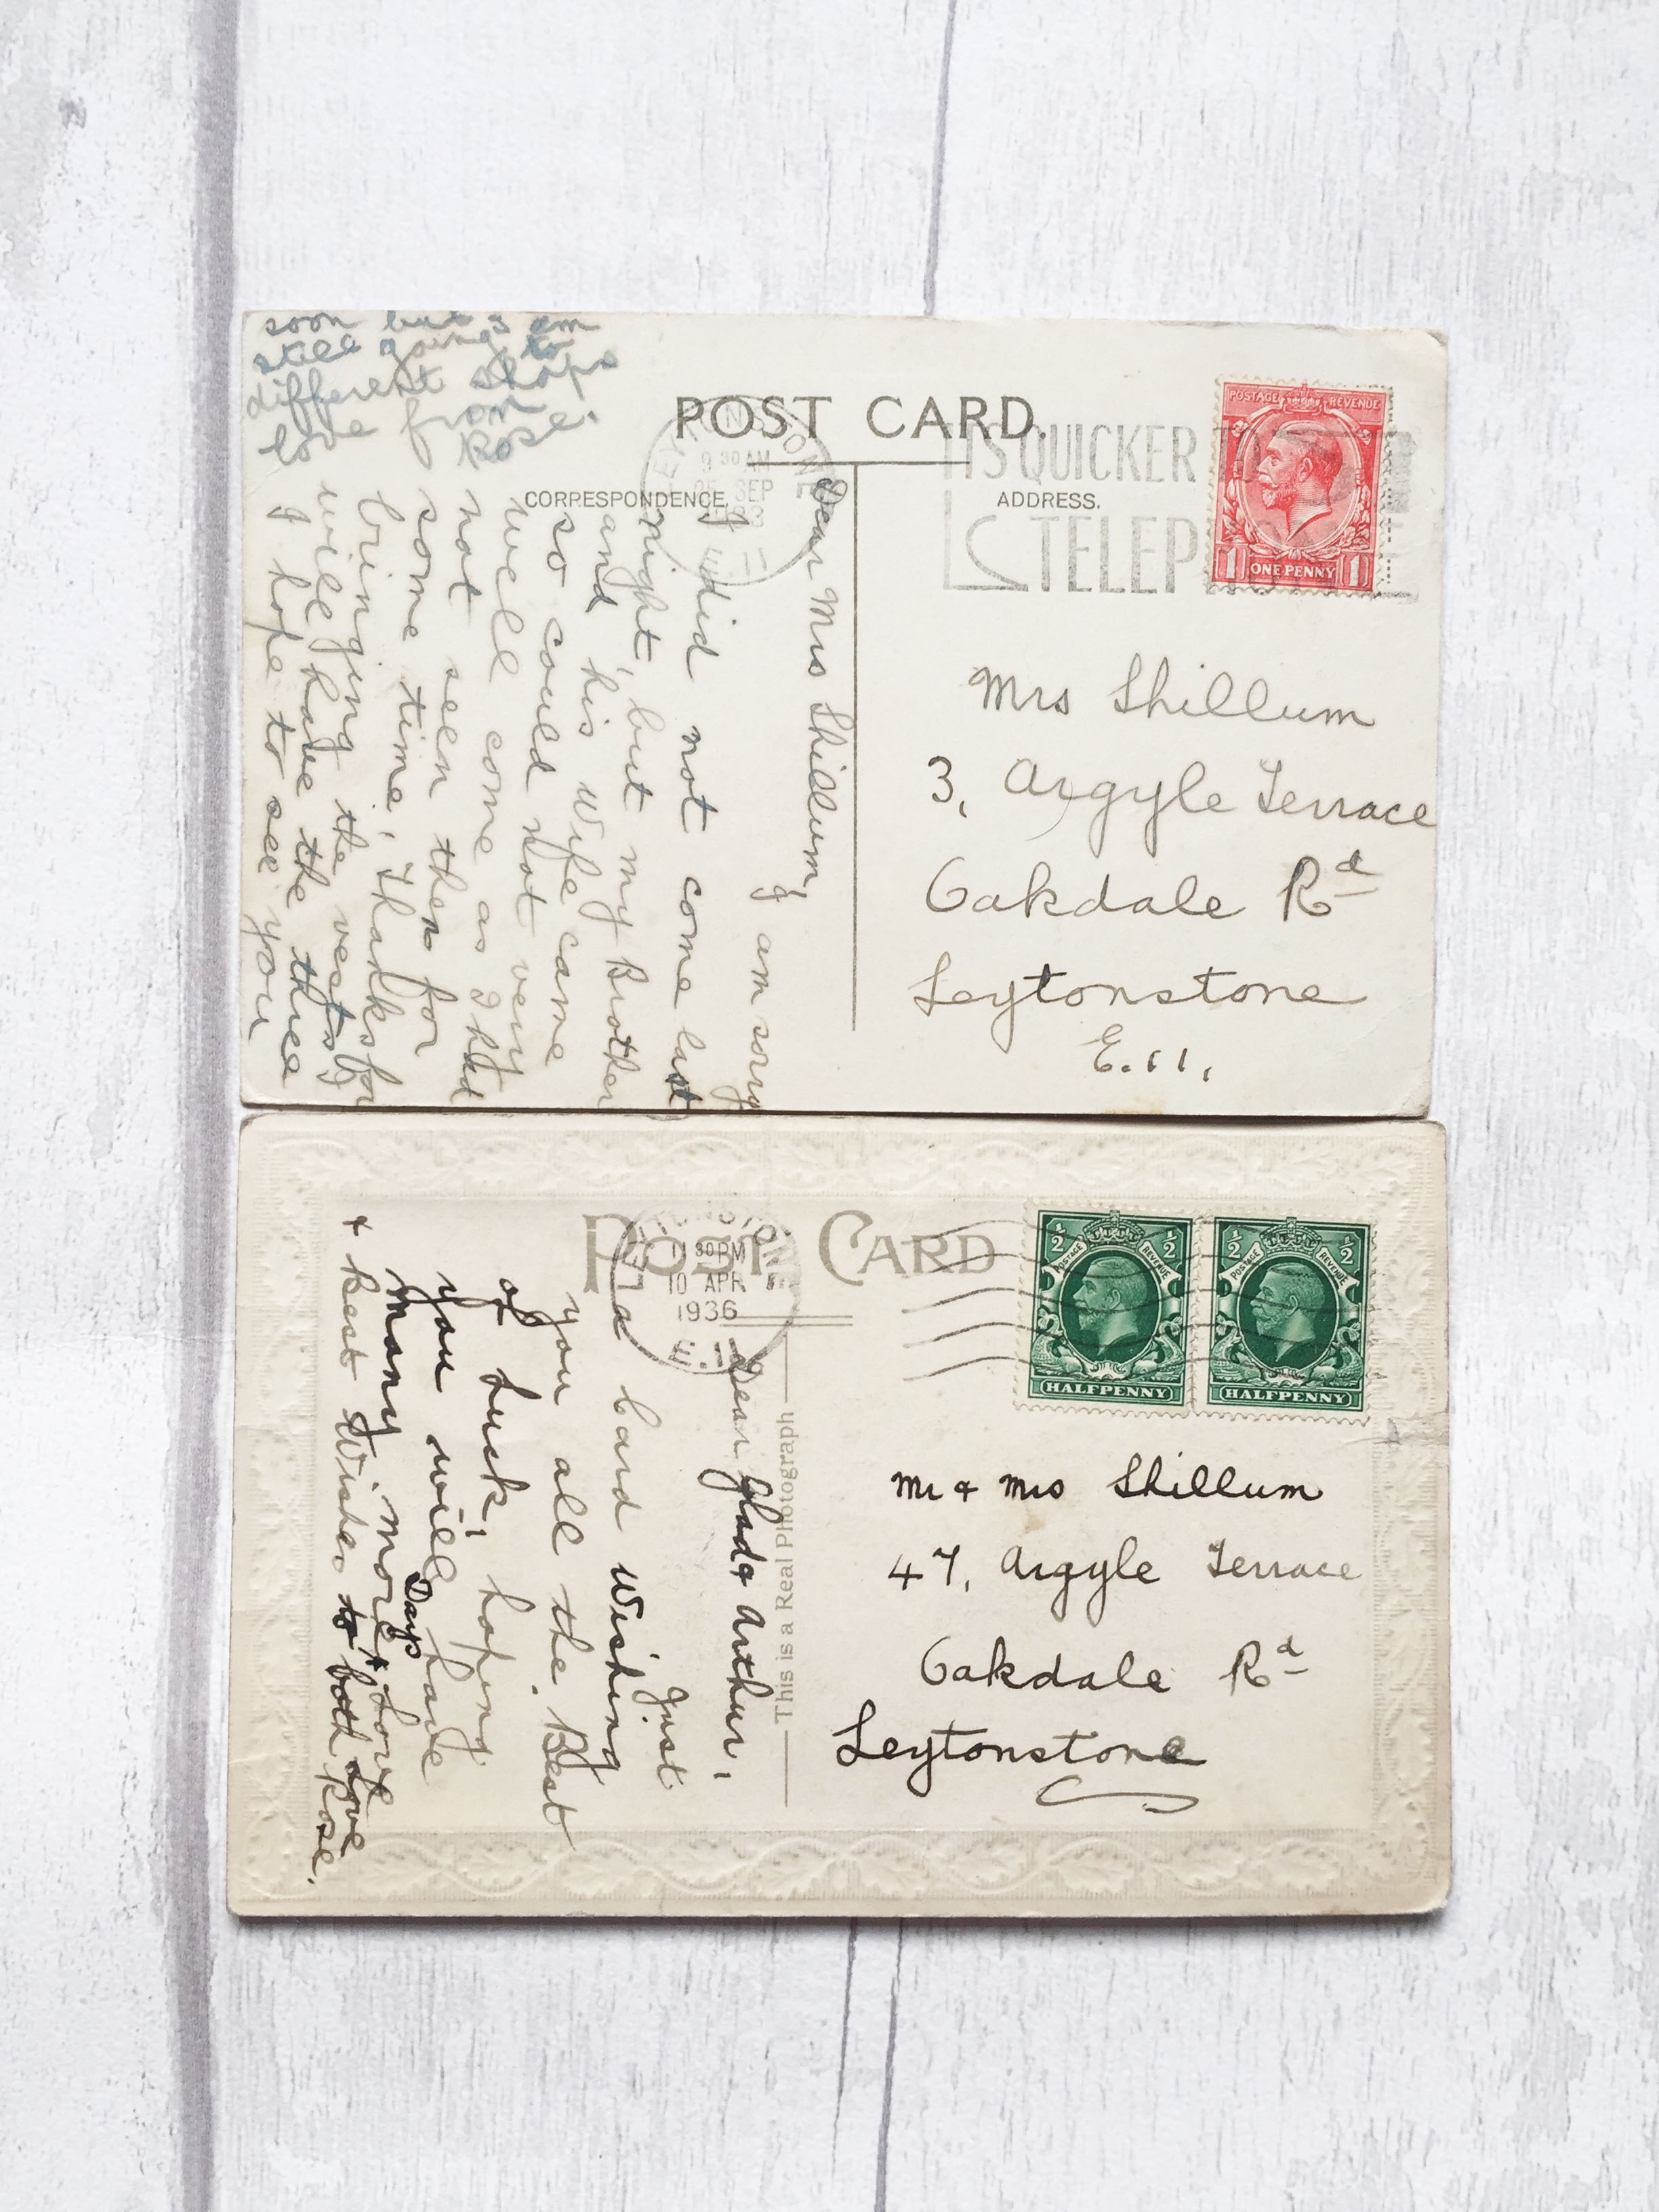 POST CARD.
CORRESPONDENCE.
ADDRESS.
LEYTONSTONE
9 30 AM
25 SEP
1933
E.11
IT'S QUICKER TO
TELEP
POSTAGE REVENUE
1 ONE PENNY 1
Mrs Shillum
3, Argyle Terrace
Oakdale Rd
Leytonstone
E.11.
Dear Mrs Shillum,
I am sorry
I did not come last
night, but my Brother
and his Wife came
so could not very
well come as I had
not seen them for
some time, Thanks for
bringing the vests I
will have the three
I hope to see you
soon but I am
still going to
different shops
love from
Rose.
POST CARD
LEYTONSTONE
11 30 PM
10 APR
1936
E.11
½ POSTAGE REVENUE ½
HALFPENNY
½ POSTAGE REVENUE ½
HALFPENNY
This is a Real Photograph
Mr & Mrs Shillum
47, Argyle Terrace
Oakdale Rd
Leytonstone
Dear Glad & Arthur,
Just
a Card Wishing
you all the Best
of Luck, hoping
you will have
many more Days
& Love
& Best Wishes to both Love
Rose.